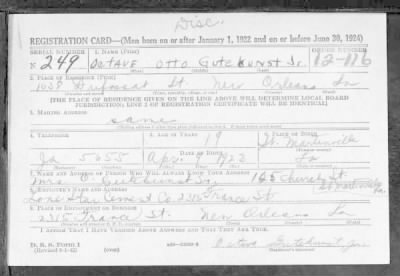 Disc.
REGISTRATION CARD—(Men born on or after January 1, 1922 and on or before June 30, 1924)
SERIAL NUMBER 1. NAME (Print) ORDER NUMBER
N 249 Octave Otto Gutekunst Jr. 12-116
(First) (Middle) (Last)
2. PLACE OF RESIDENCE (Print)
St. New Orleans La
(THE PLACE OF RESIDENCE GIVEN ON THE LINE ABOVE WILL DETERMINE LOCAL BOARD
JURISDICTION; LINE 2 OF REGISTRATION CERTIFICATE WILL BE IDENTICAL)
3. MAILING ADDRESS
same
4. TELEPHONE 5. AGE IN YEARS 6. PLACE OF BIRTH
19 St. Martinville
Ja 5655 Apr. 9 1923 La
7. NAME AND ADDRESS OF PERSON WHO WILL ALWAYS KNOW YOUR ADDRESS
Mrs O. Gutekunst Sr. St. St. Martinville La
8. EMPLOYER'S NAME AND ADDRESS
Lone Star Cement Co. 2315 France St.
9. PLACE OF EMPLOYMENT OR BUSINESS
2315 France St. New Orleans La
I AFFIRM THAT I HAVE VERIFIED ABOVE ANSWERS AND THAT THEY ARE TRUE.
D. S. S. FORM 1
Octave Gutekunst Jr.